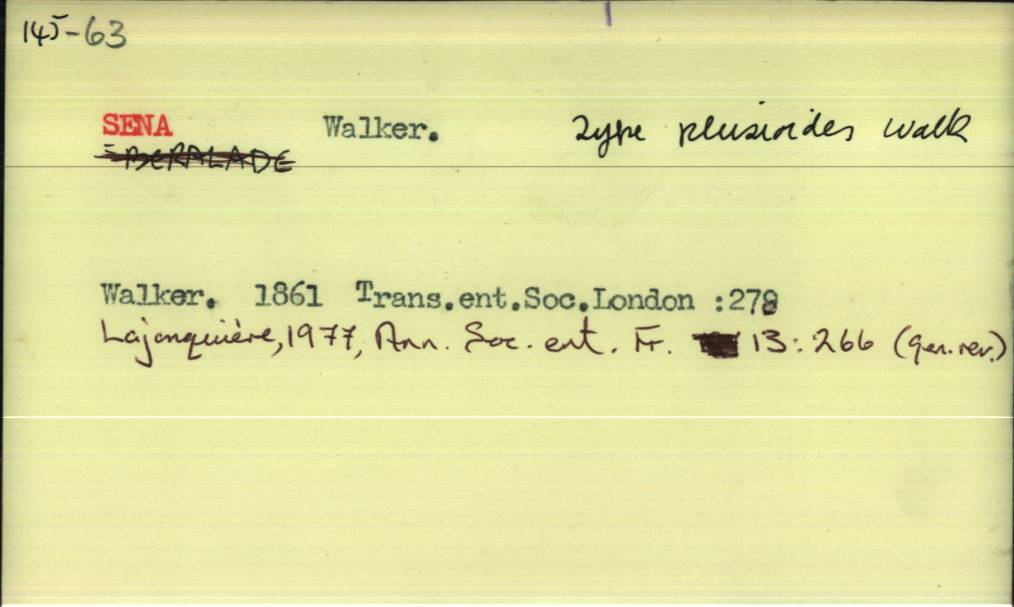 145-63
SENA Walker. Type plusioides Walk
= BERALADE
Walker. 1861 Trans.ent.Soc.London :278
Lajonquière, 1977, Ann. Soc. ent. Fr. 13: 266 (gen. rev.)